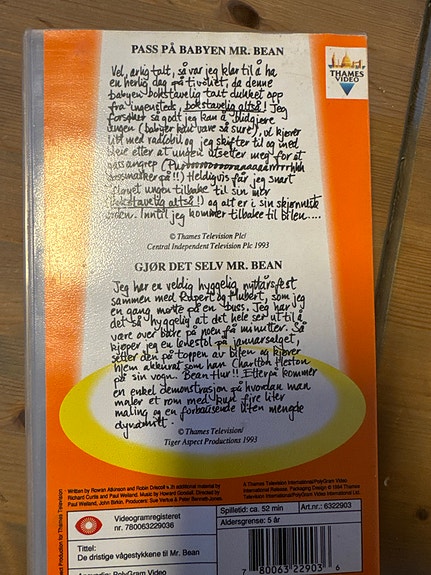 PASS PÅ BABYEN MR. BEAN
THAMES
VIDEO
Vel, ærlig talt, så var jeg klar til å ha
en herlig dag på tivoliet, da denne
babyen bokstavelig talt dukket opp
fra ingensteds, bokstavelig altså! Jeg
forsøker så godt jeg kan å blidgjøre
ungen (babyer kan være så sure), vi kjører
litt med radiobil og jeg skifter til og med
bleie etter at ungen utsetter meg for et
gassangrep
Heldigvis får jeg snart
fløyet ungen tilbake til sin mor
(bokstavelig altså!) og alt er i sin skjønneste
orden. Inntil jeg kommer tilbake til bilen....
© Thames Television Plc/
Central Independent Television Plc 1993
GJØR DET SELV MR. BEAN
Jeg har en veldig hyggelig nyttårsfest
sammen med Rupert og Hubert, som jeg
en gang møtte på en buss. Jeg har
det så hyggelig at det hele ser ut til å
vare over bare på noen få minutter. Så
kjøper jeg en lenestol på januarsalget,
setter den på toppen av bilen og kjører
hjem akkurat som han Charlton Heston
på sin vogn. Bean Hur!! Etterpå kommer
en enkel demonstrasjon på hvordan man
maler et rom med kun fire liter
maling og en forbausende liten mengde
dynamitt.
© Thames Television/
Tiger Aspect Productions 1993
Written by Rowan Atkinson and Robin Driscoll with additional material by
Richard Curtis and Paul Weiland. Music by Howard Goodall. Directed by
Paul Weiland, John Birkin. Producers: Sue Vertue & Peter Bennett-Jones.
A Thames Television
International/PolyGram Video
International Release. Packaging Design © 1994 Thames
Television International/PolyGram Video International Ltd.
Aspect Production for Thames Television
Videogramregisteret
nr. 780063229036
Spilletid: ca. 52 min
Art.nr.: 6322903
Aldersgrense: 5 år
Tittel:
De dristige vågestykkene til Mr. Bean
PolyGram Video
7 80063 22903 6